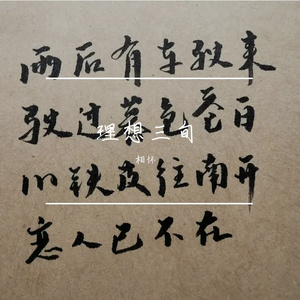 雨后有车驶来
驶过暮色苍白
理想三旬
旧铁皮往南开
恋人已不在